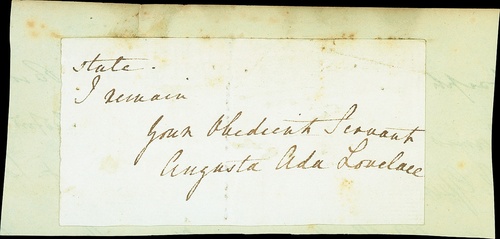 state.
I remain
Your Obedient Servant
Augusta Ada Lovelace